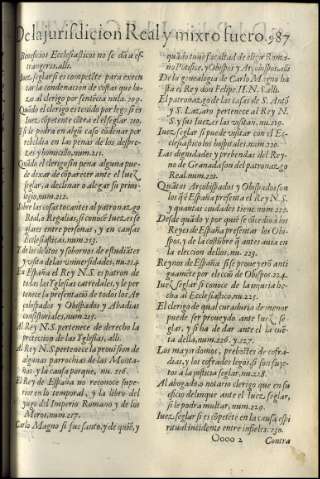 De la jurisdicion Real y mixto fuero. 587
Beneficios Ecclesiasticos no se dã a es-
trangeros, alli.
Iuez seglar si es competẽte para execu
tar la condenacion de costas que ha-
ze al clerigo por sentẽcia núm. 209.
Quãdo el clerigo es traido por lego, si es
Iuez cõpetente contra el el seglar. 210.
Si se podrá en algũ caso cõdenar por
rebeldia en las penas de los despre-
zes y homezillo, num. 211.
Quãdo el clerigo sin pena alguna pue-
de dexar de cõparecer ante el Iuez se
glar, a declinar o alegar su privi-
legio, num. 212.
Sobre las cosas tocantes al patronazgo
Real, o Regalias, si conoce Iuez se-
glar entre personas, y en causas
Ecclesiasticas, num. 213.
De los delitos y sobornos de estudiãtes
y visita de las vniuersidades, nu. 214
En España el Rey N.S. es patron de
todas las Yglesias catredales, y le per
tenece la presentaciõ de todos los Ar
çobispados y Obispados y Abadias
consistoriales, num. 215.
Al Rey N.S. pertenece de derecho la
proteccion de las Yglesias, alli.
Al Rey N.S. pertenece la prouision de
algunas parrochias de las Monta-
ñas y la causa porque, nu. 216.
El Rey de España no reconoce supe-
rior en lo temporal, y la libro del
yugo del Imperio Romano y de los
Moros, num. 217.
Carlo Magno si fue santo, y de quiẽ, y
quãdo tuuo facultad de elegir Roma-
no Põtifice, y Obispos y Arçobispos. alli
De la genealogia de Carlo Magno ha
sta el Rey don Felipe. II. N.S. alli.
El patronazgo de las casas de S. Antõ
y S. Lazaro pertenece al Rey N.
S. y sus Iuezes las visitan, nu. 219.
Iuez seglar si puede visitar con el Ec-
clesiastico los hospitales. alli.
Las dignidades y prebendas del Rey-
no de Granada son del patronazgo
Real. alli.
Quãtos Arçobispados y Obispados son
los q̃ en España presenta el Rey N.S.
y quantas ciudades tiene num. 220.
Desde quãdo y por que se dio a los
Reyes de España presentar los Obis-
pos, y de la costũbre q̃ antes auia en
la eleccion dellos, nu. 223.
Reynos de España si se proueyerõ anti
guamẽte por elecciõ de Obispos. 224.
Iuez Seglar si conoce de la injuria he-
cha al Ecclesiastico, nu. 225.
El clerigo de qual curaduria de menor
puede ser proueydo ante Iuez se-
glar, y si ha de dar ante el la cuẽ
ta della, num. 226. y. 227.
Los mayordomos, prebostes de cofra-
dias, y los cofrades legos, si son suje-
tos a la justicia seglar. nu. 228.
Al abogado o notario clerigo que en su
oficio delinque ante el Iuez seglar,
si le podra multar, num. 229.
Iuez seglar si es cõpetẽte en la causa espi
ritual incidente entre infieles. 230.
Oooo 2 Contra